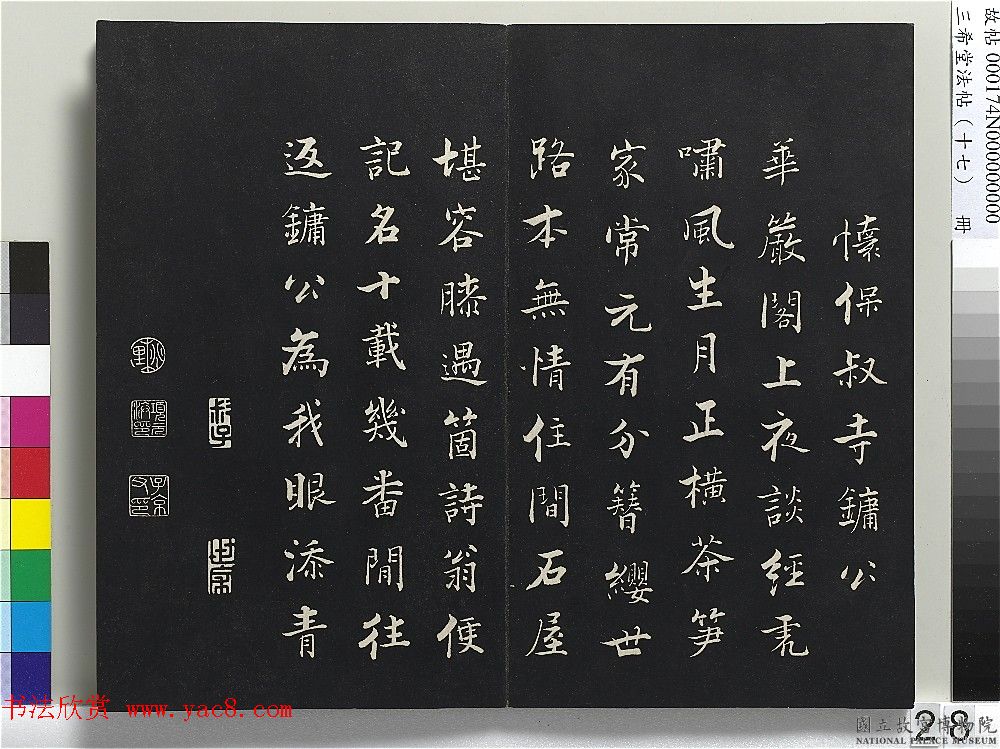 懷保叔寺鏞公
華嚴閣上夜談經秃
嘯風生月正橫茶笋
家常元有分簪纓世
路本無情住間石屋
堪容膝遇箇詩翁便
記名十載幾番閒往
返鏞公為我眼添青
故帖000174N000000000
三希堂法帖(十七) 冊
书法欣赏 www.yac8.com
28
國立故宮博物院
NATIONAL PALACE MUSEUM